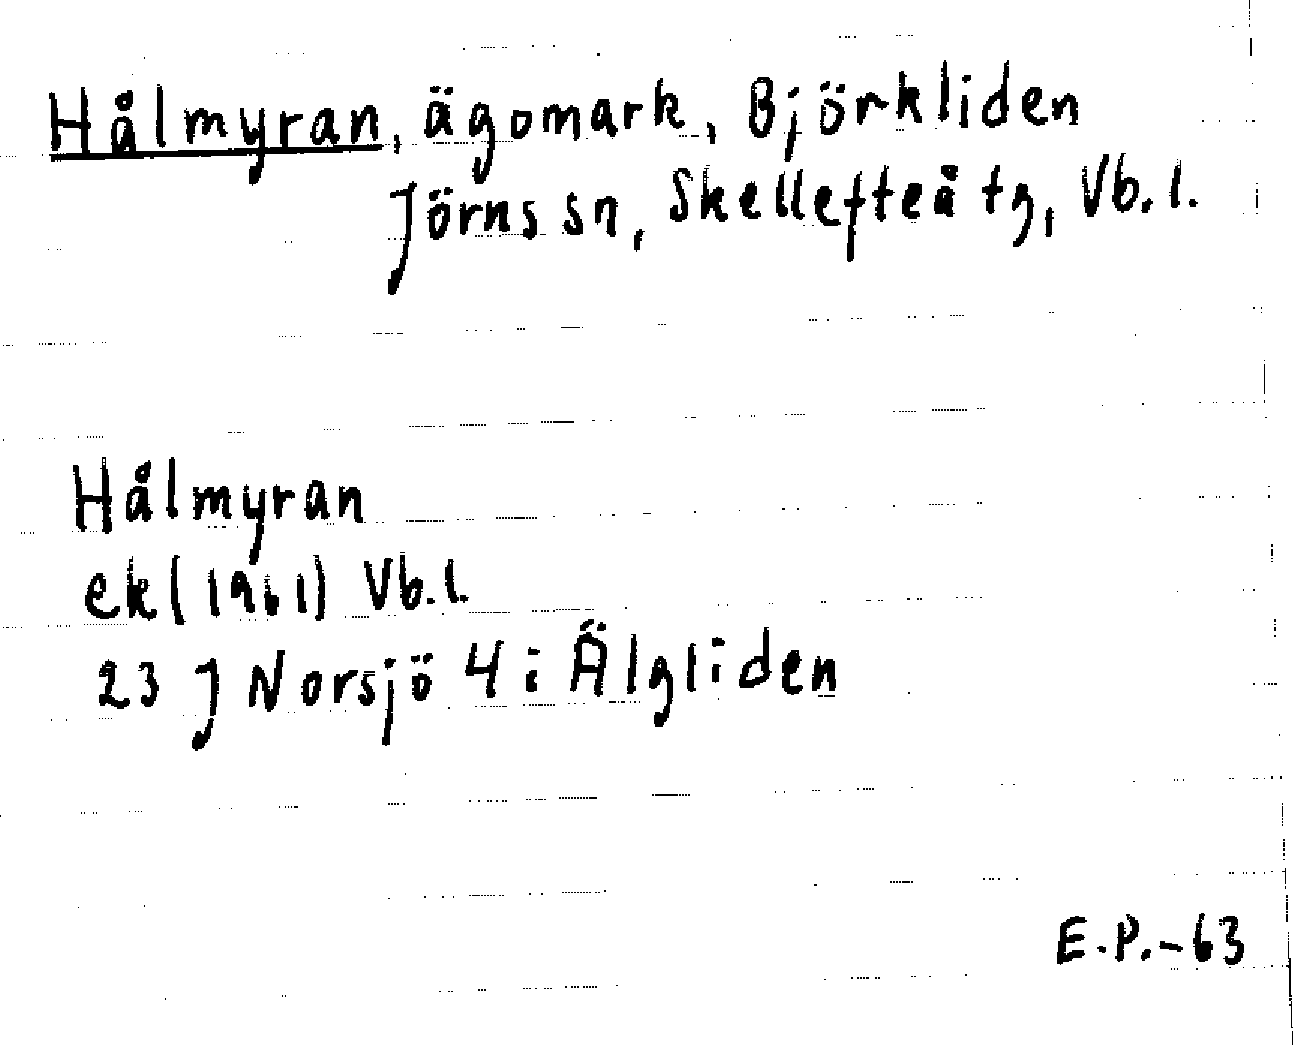 Hålmyran, ägomark, Björkliden
Jörns sn, Skellefteå tg, Vb. l.
Hålmyran
ek (1961) Vb. l.
23 J Norsjö 4 i Älgliden
E.P.-63